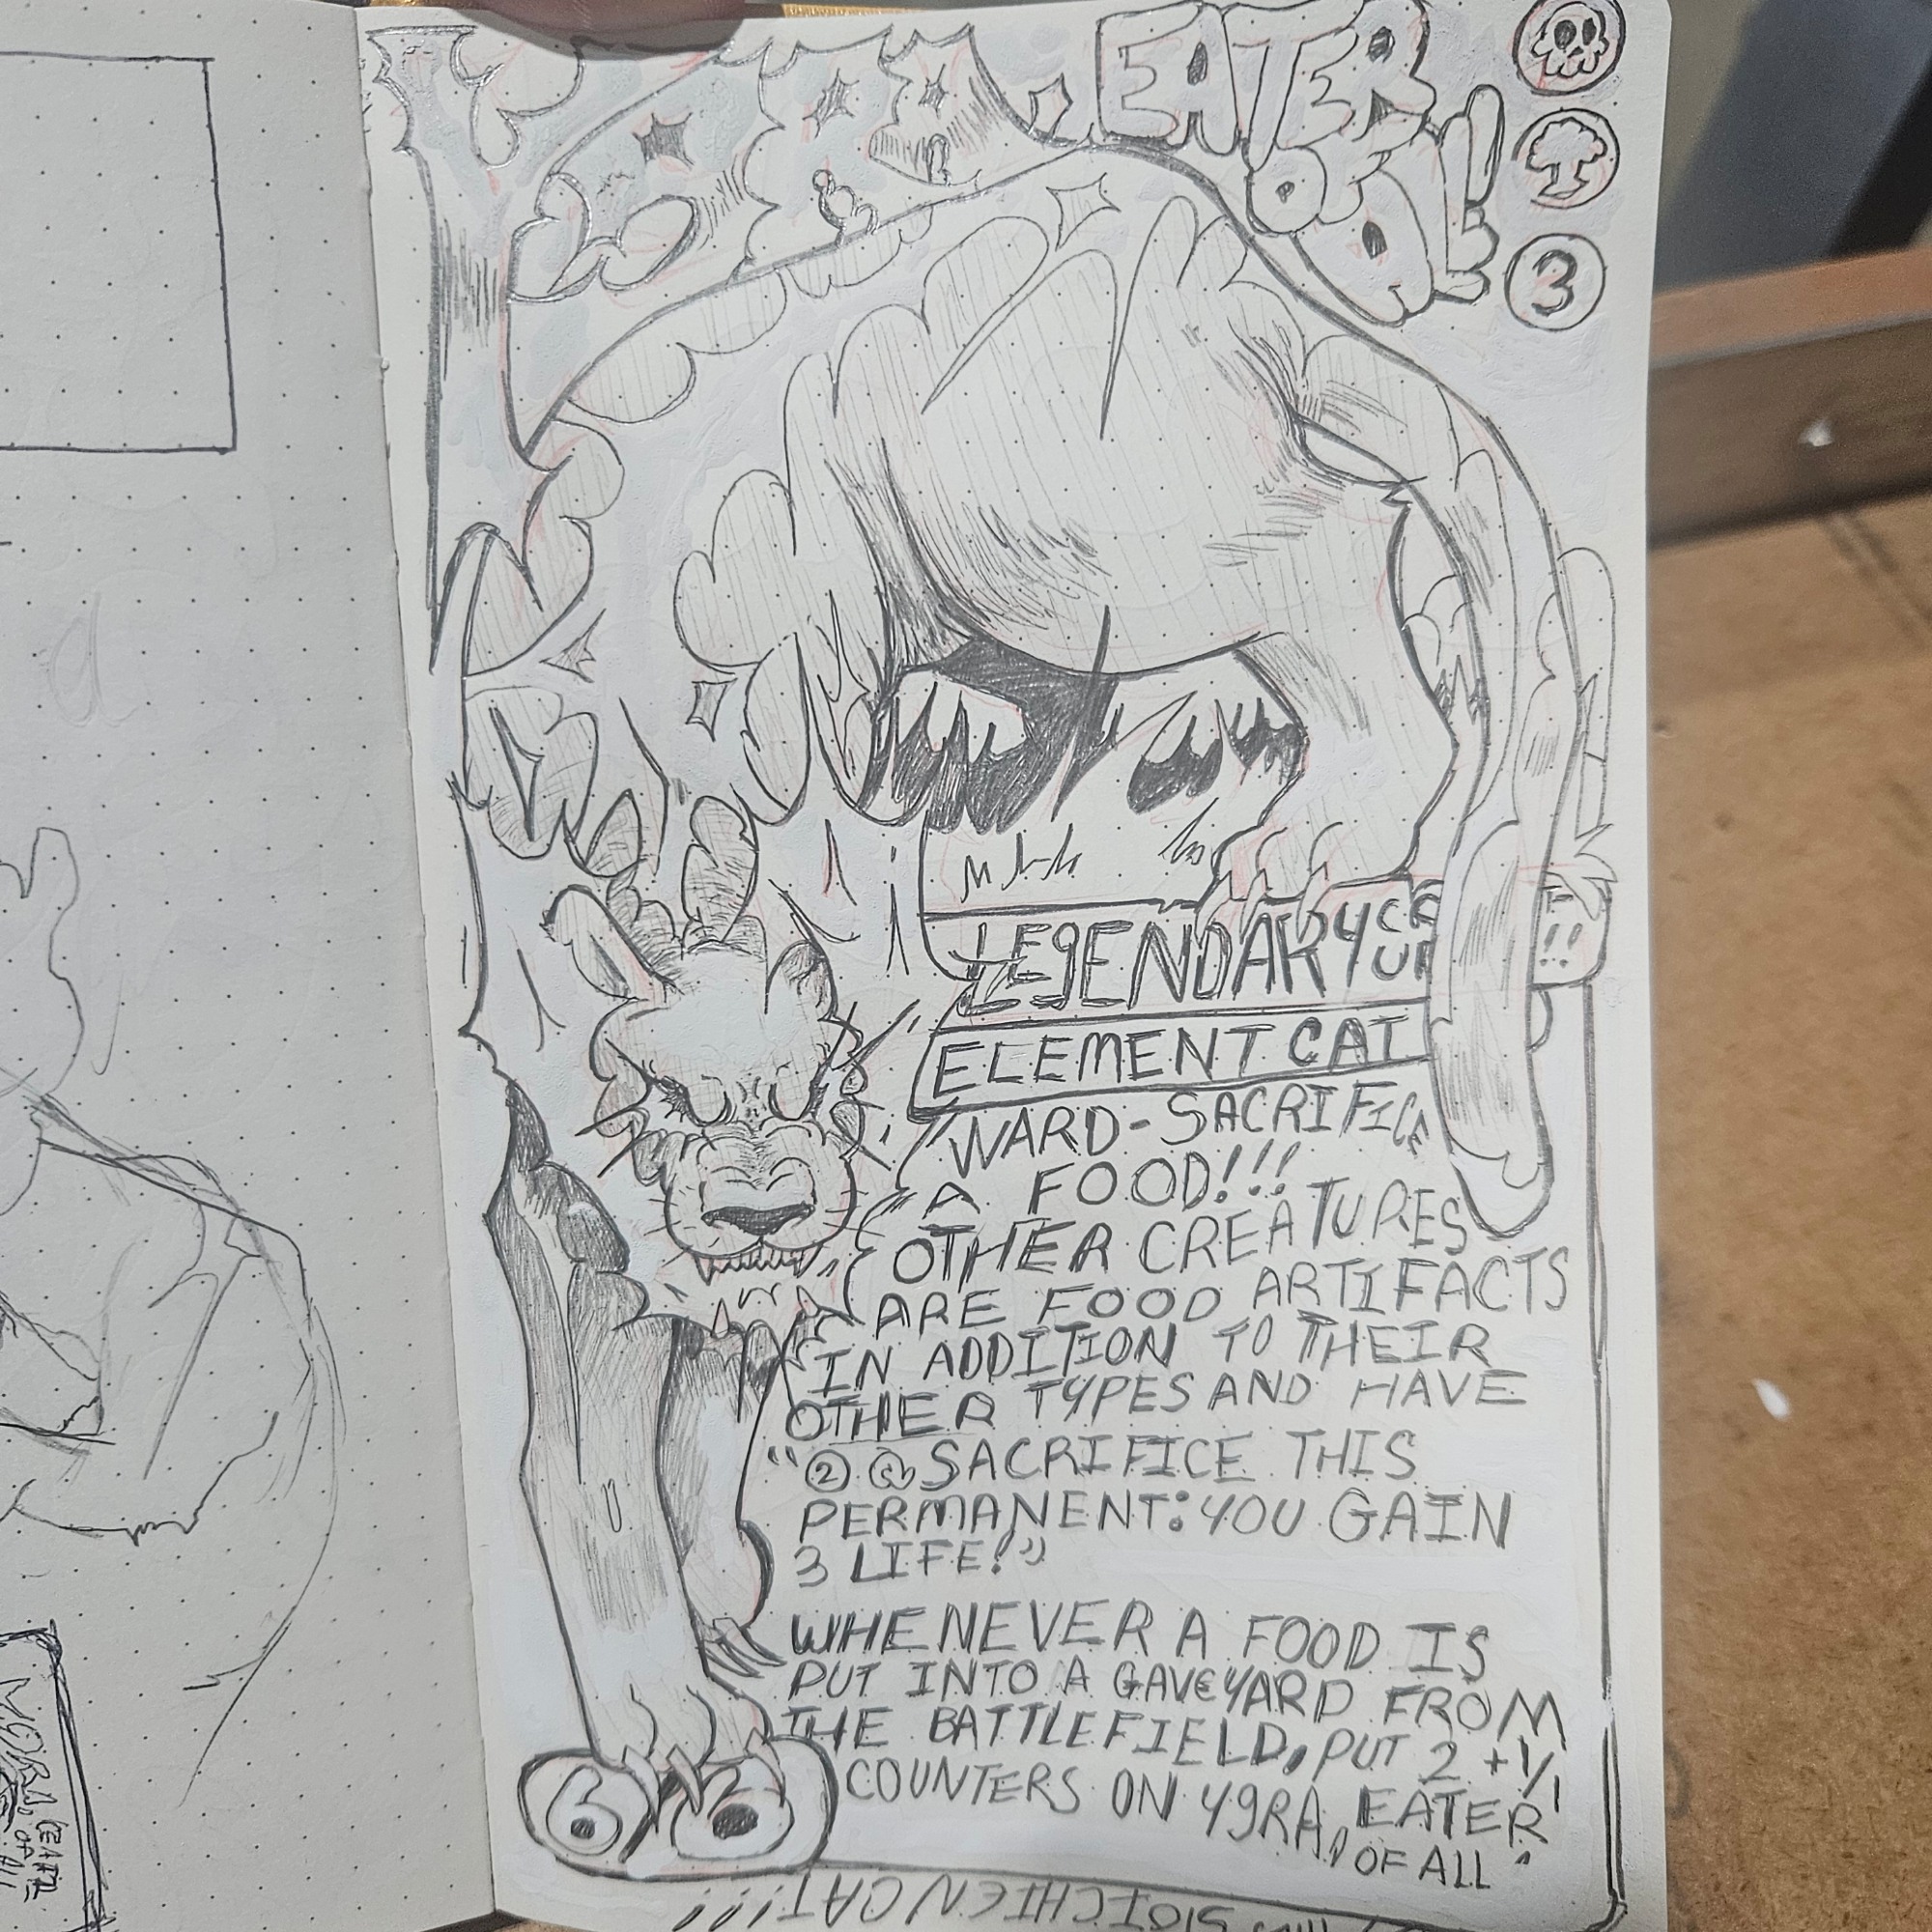 EATER
OF
ALL!
3
LEGENDARY
ELEMENT CAT
WARD-SACRIFICE
A FOOD!!!
OTHER CREATURES
ARE FOOD ARTIFACTS
IN ADDITION TO THEIR
OTHER TYPES AND HAVE
"2 SACRIFICE THIS
PERMANENT: YOU GAIN
3 LIFE!"
WHENEVER A FOOD IS
PUT INTO A GAVEYARD FROM
THE BATTLEFIELD, PUT 2 +1/1
COUNTERS ON YGRA, EATER
OF ALL
6 6
CAT!!!!
EATER
OF ALL